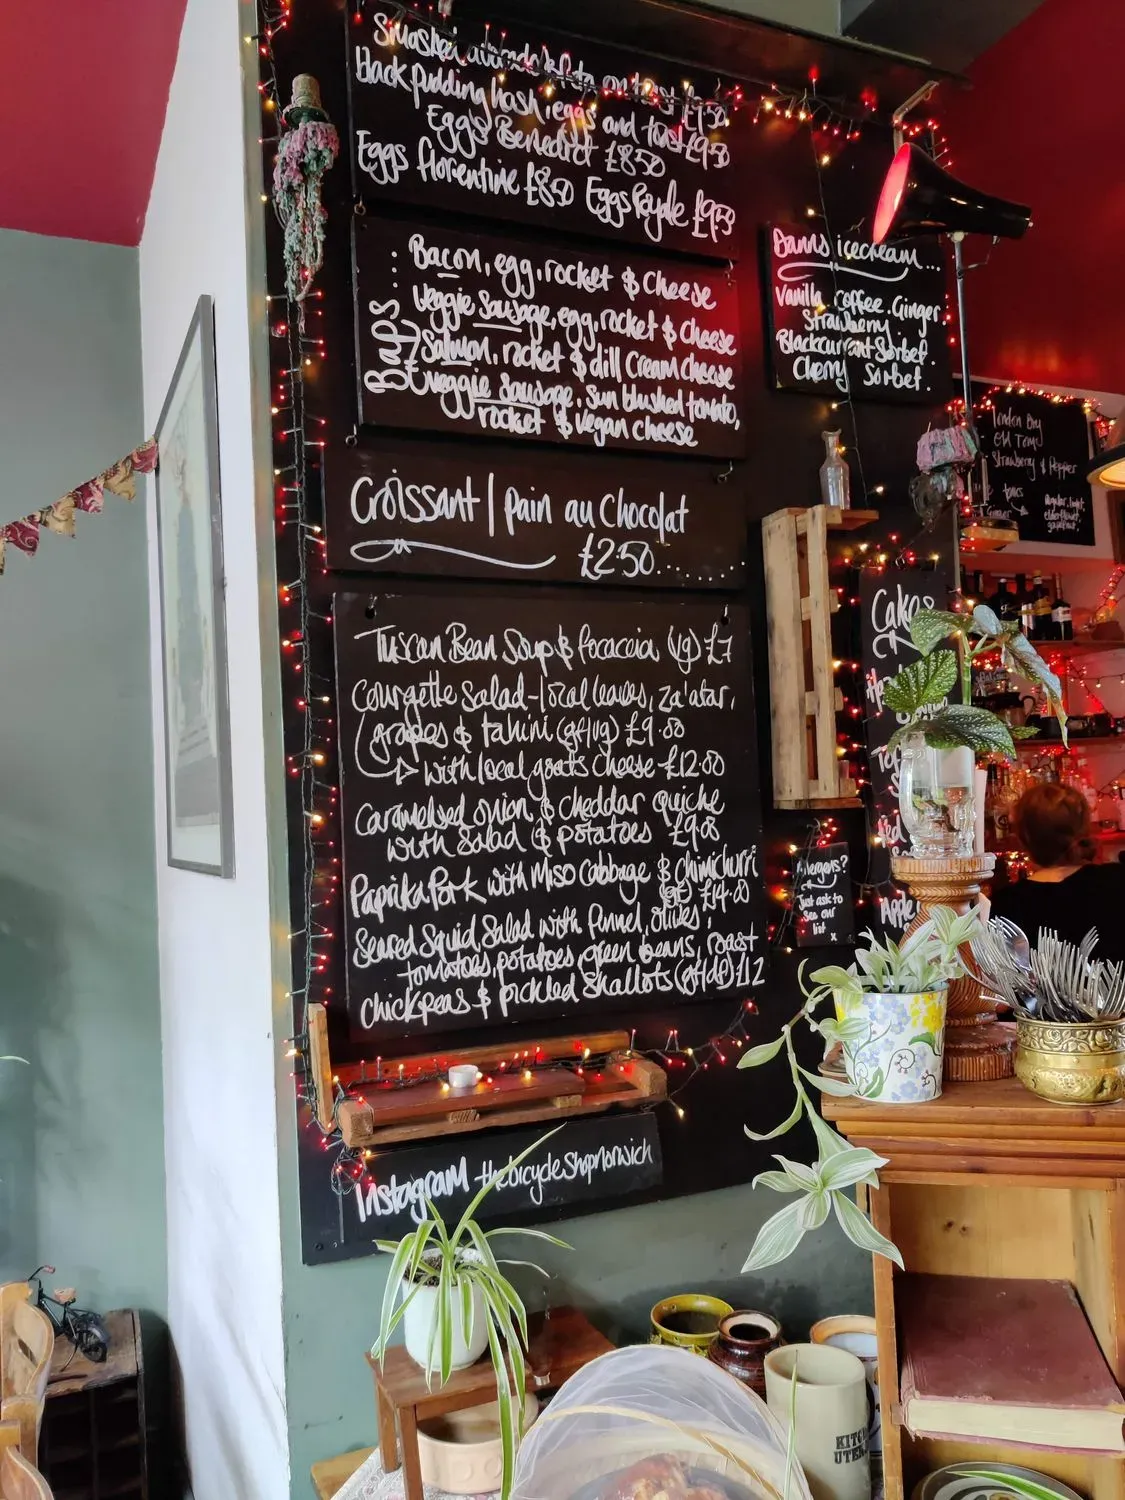 Smashed avocado & feta on toast £9.50
black pudding hash, eggs and toast £9.50
Eggs Benedict £8.50
Eggs florentine £8.50 Eggs Royale £9.50
Baps...
Bacon, egg, rocket & Cheese
Veggie Sausage, egg, rocket & cheese
Salmon, rocket & dill Cream cheese
veggie sausage, Sun blushed tomato,
rocket & vegan cheese
Croissant | pain au Chocolat
£2.50........
Tuscan Bean Soup & focaccia (vg) £7
Courgette Salad - local leaves, za'atar,
grapes & tahini (gf/vg) £9.00
with local goats cheese £12.00
Caramelised onion & cheddar quiche
with Salad & potatoes £9.00
Paprika Pork with Miso Cabbage & chimichurri
(gf) £14.00
Seared Squid Salad with fennel, olives,
tomatoes, potatoes, green beans, roast
chickpeas & pickled shallots (gf/df) £12
Instagram - thebicycleshopnorwich
Danns icecream...
Vanilla. coffee. Ginger.
Strawberry.
Blackcurrant Sorbet.
Cherry Sorbet.
London Dry
Old Tom
Strawberry & Pepper
Cakes
Allergens?
Just ask to
see our
list x
Apple
KITCHEN